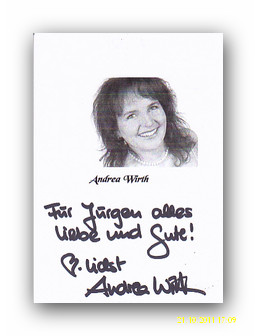 Andrea Wirth
Für Jürgen alles
Liebe und Gute!
Andrea Wirth